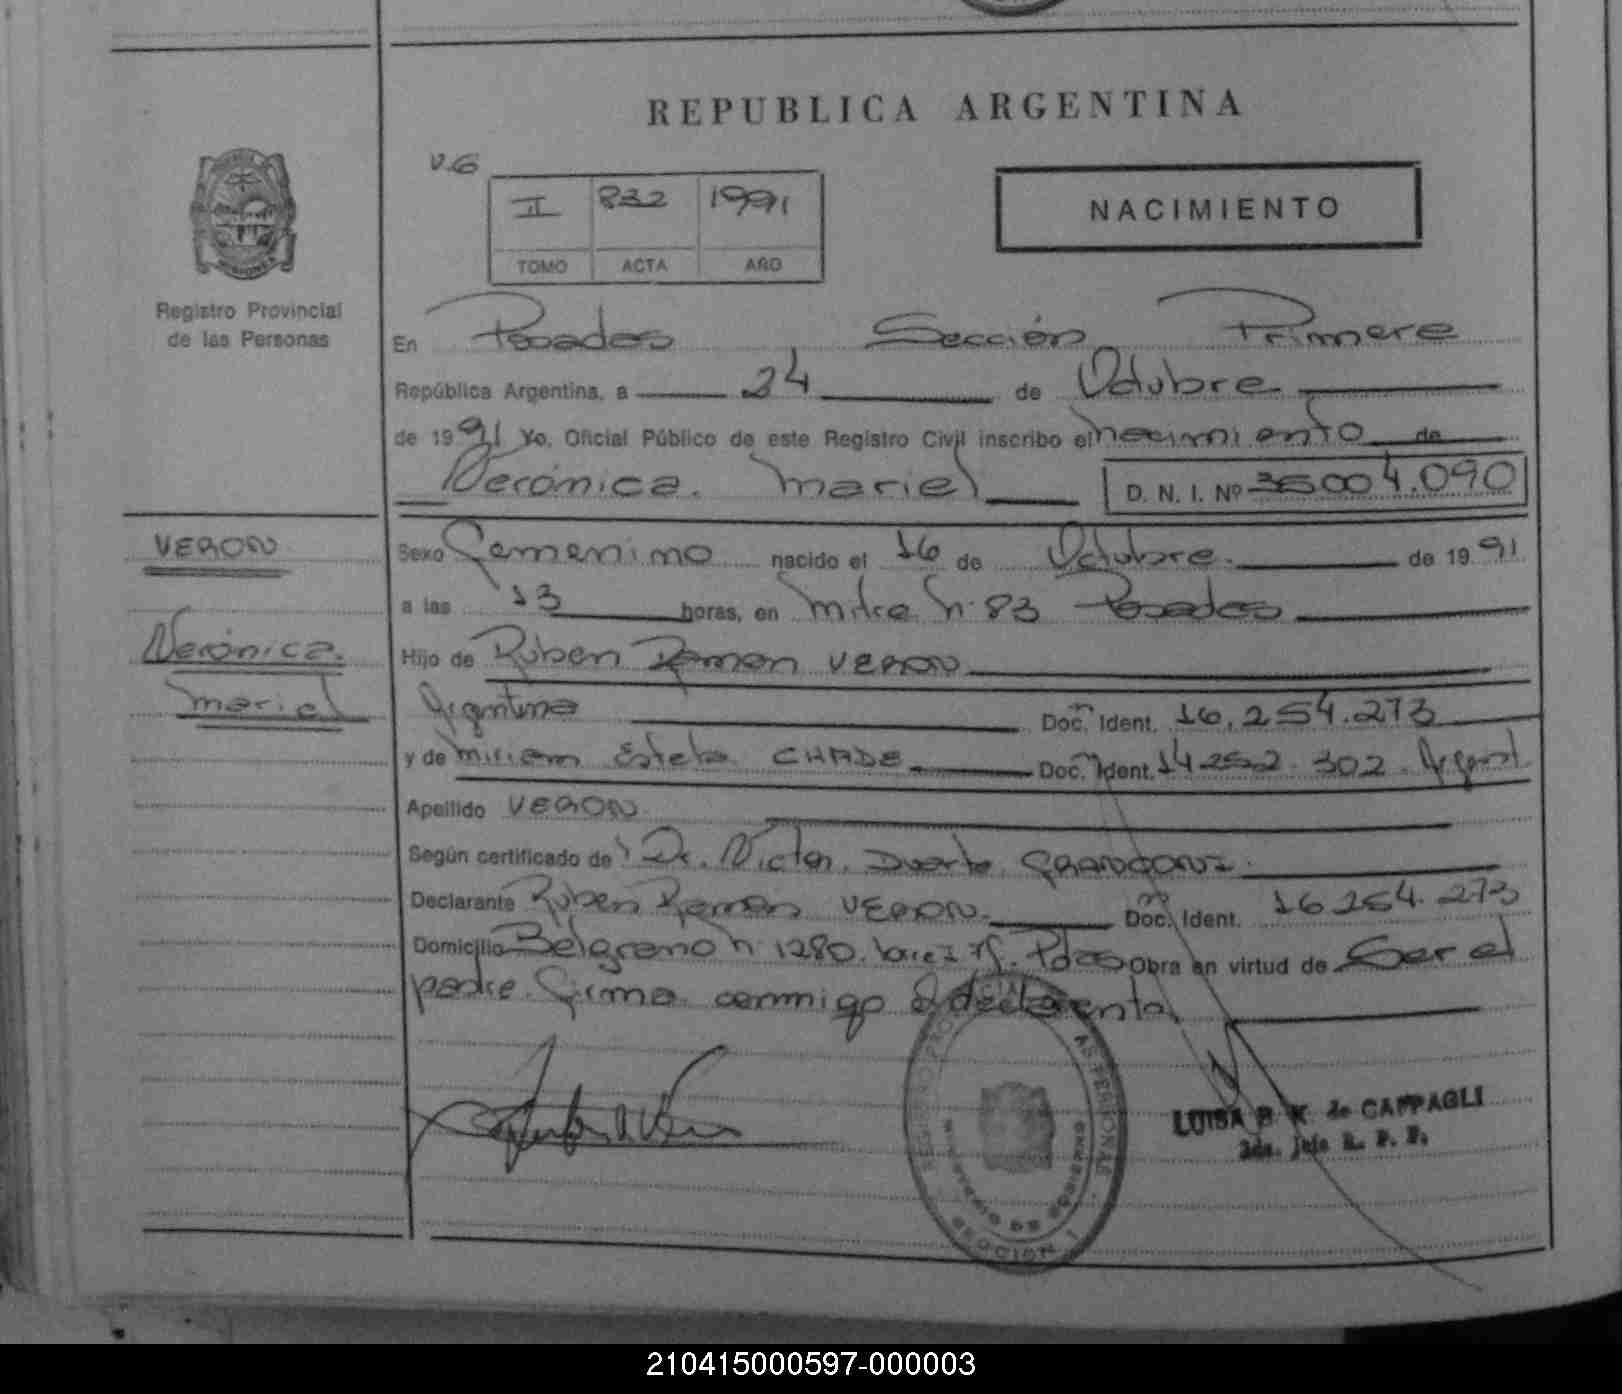 REPUBLICA ARGENTINA
V.G
II 832 1991
TOMO ACTA AÑO
NACIMIENTO
Registro Provincial
de las Personas
En Posadas Sección Primera
República Argentina, a 24 de Octubre
de 1991 Yo, Oficial Público de este Registro Civil inscribo el nacimiento de
Verónica Mariel D. N. I. Nº 36004.090
VERON
Verónica
Mariel
Sexo Femenino nacido el 16 de Octubre de 1991
a las 13 horas, en Mitre Nº 83 Posadas
Hijo de Rúben Ramon VERON
Argentina Doc. Ident. 16.254.273
y de Miriam Estela CHADE Doc. Ident. 14.252.302. Argent.
Apellido VERON
Según certificado de Dr. Victor Duarte
Declarante Rúben Ramon VERON Doc. Ident. 16.254.273
Domicilio Belgrano Nº 1280 Pdas Obra en virtud de Ser el
padre. Firma conmigo el declarante
LUISA B K de CAPPAGLI
2da. Jefe R. P. P.
210415000597-000003